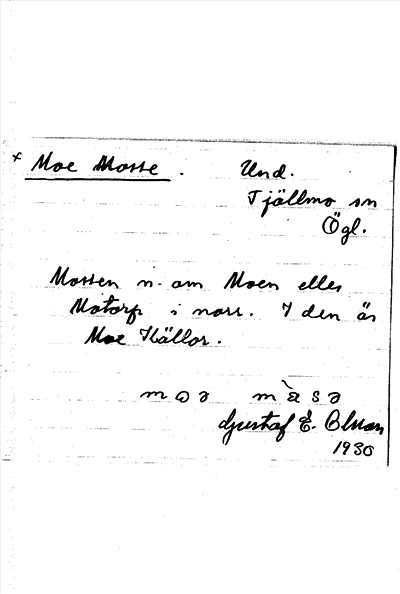 x Moe Mosse . Und.
Tjällmo sn
Ögl.
Mossen n. om Moen eller
Motorp i norr. I den är
Moe Källor.
moə måsə
Gustaf E. Olsson
1930